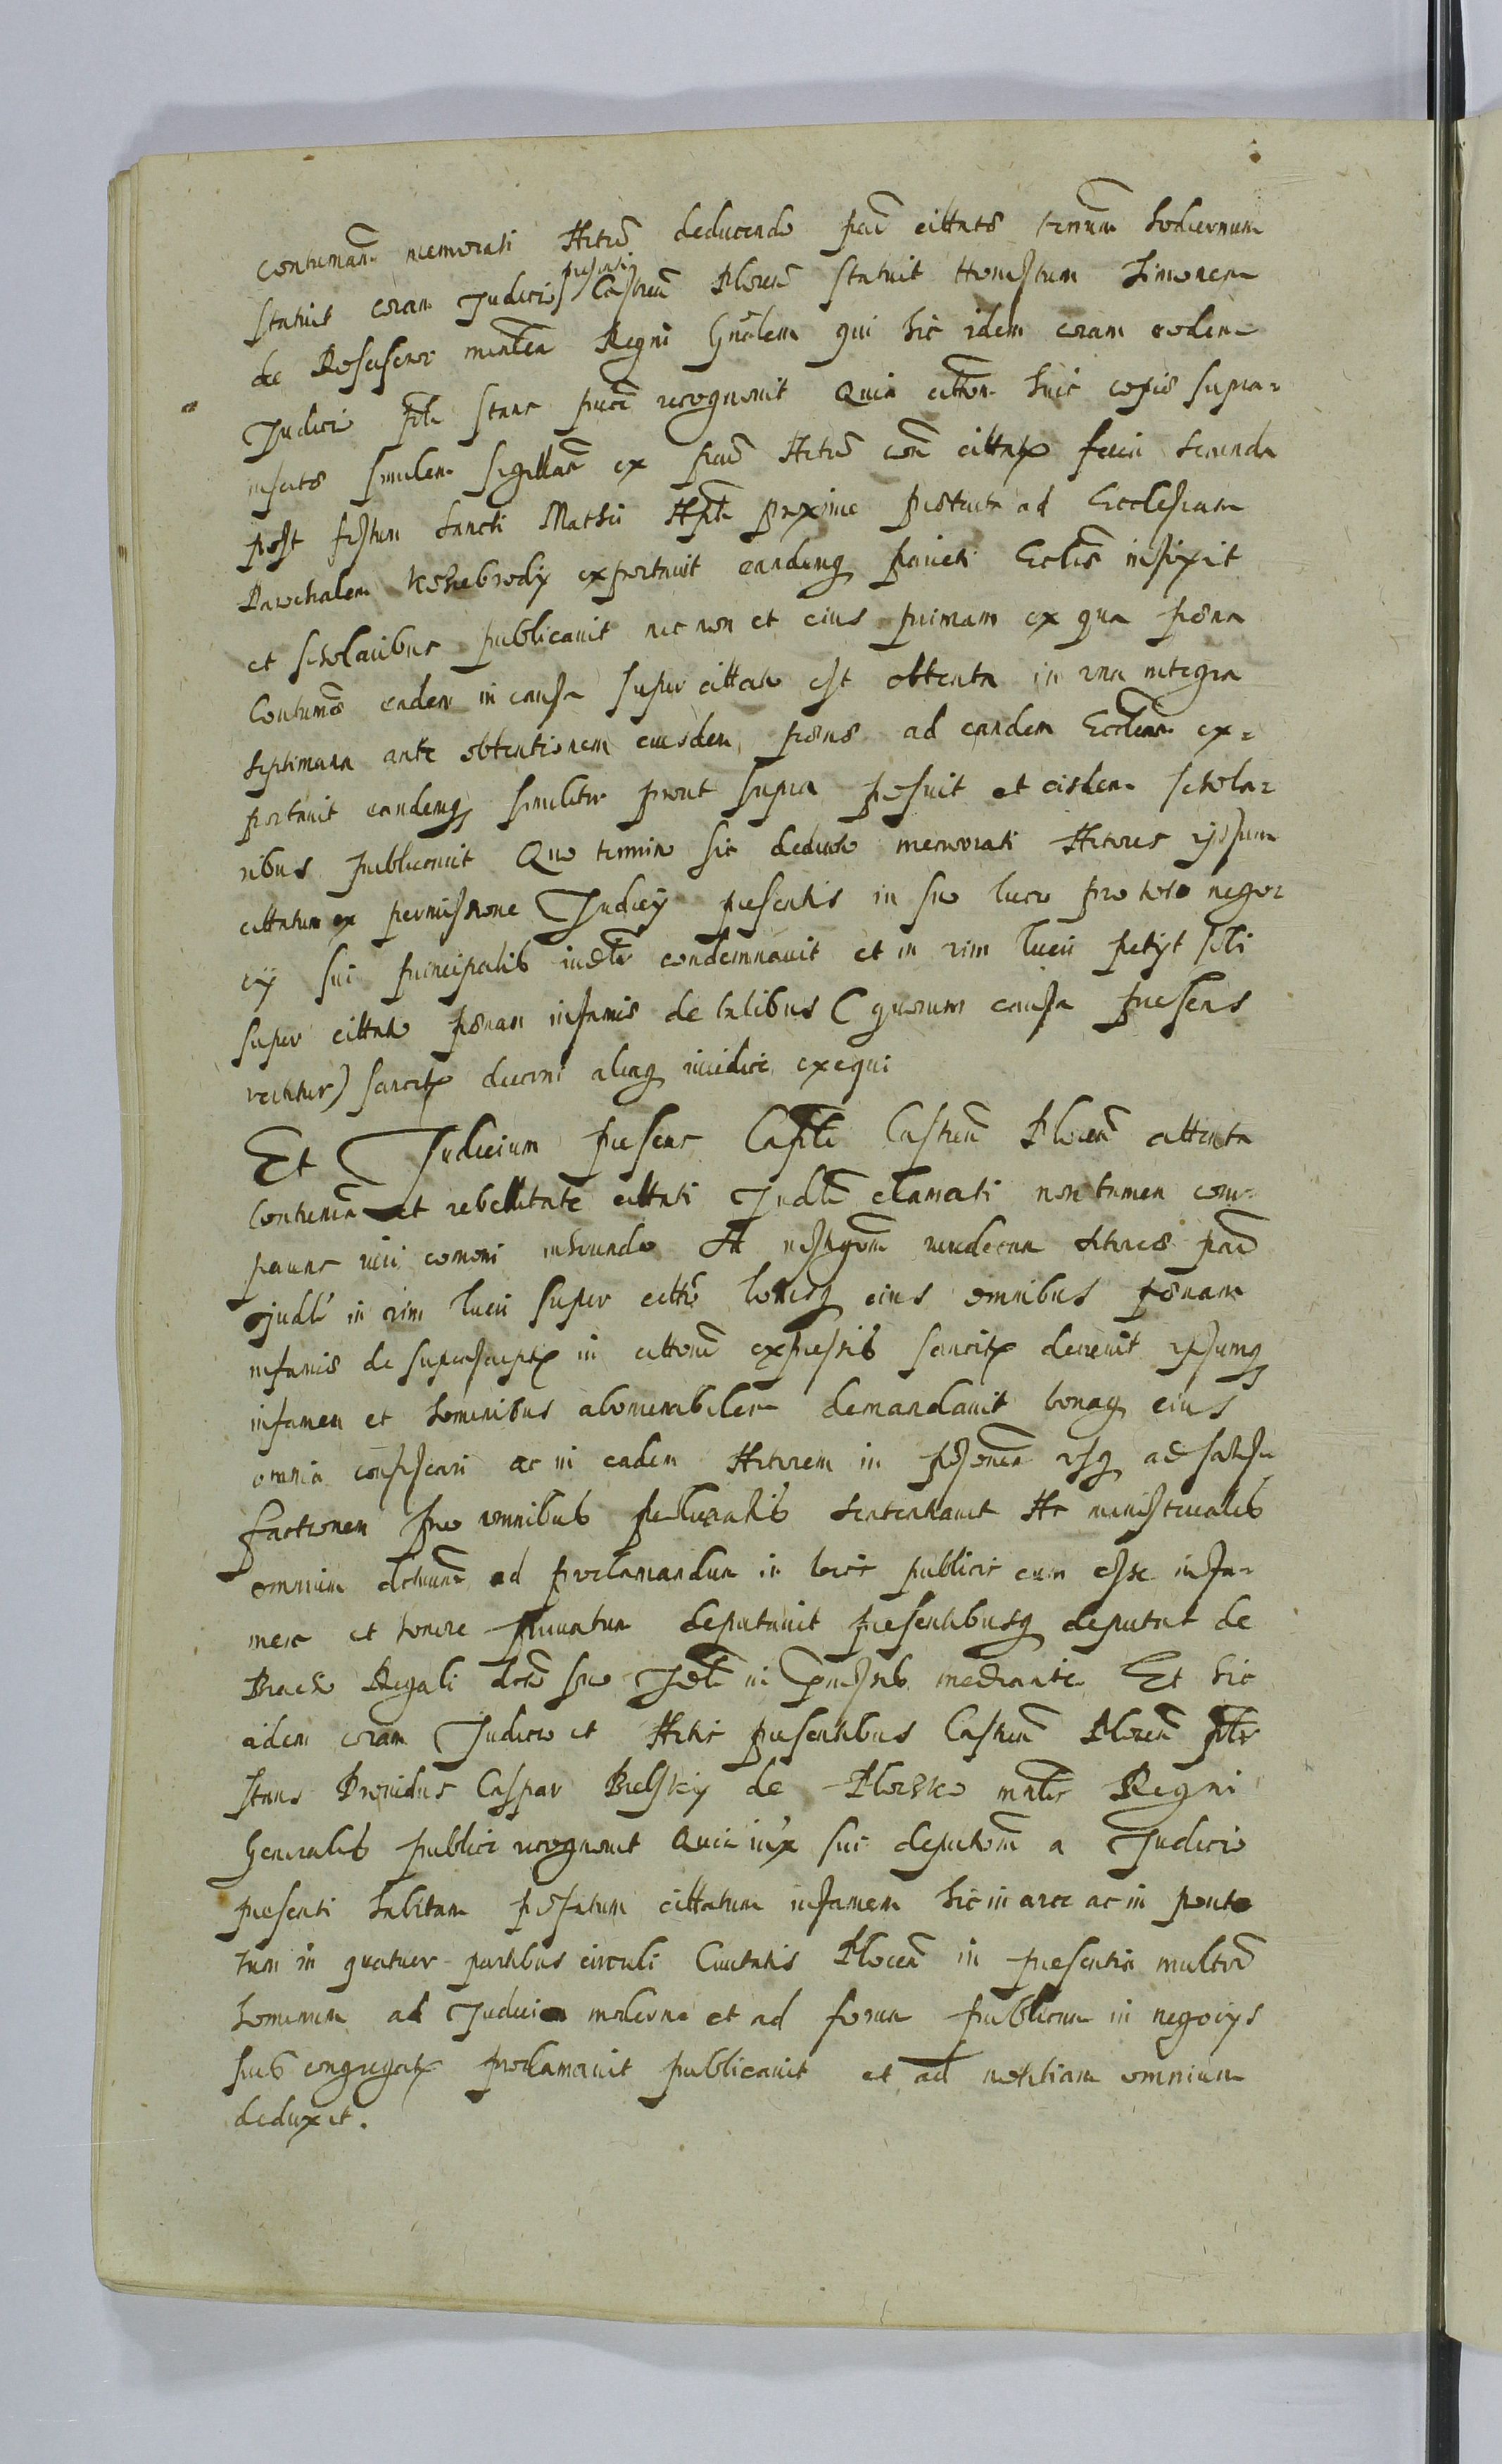 contuman memorati Actoru deducendo pnti cittats terrnum hodiernum
statuit coram Judicio presenti Castren Plocen statuit Honestum Simonem
de ministlem Regni Gnalem qui hic idem coram eodem
Judicio plr stans recognovit Quia cittem huic copie supra-
scripte similem sigillatam ex Actor cittatx feria secunda
post festum Sancti Mathei Aplti proxime preterita ad Ecclesiam
Parochalem exportavit eandemq parieti Ecclie infixit
et scholaribus publicavit nec non et eius primam ex qua pena
Contums eadem in causa super cittato est obtenta in una integra
septimana ante obtentionem eiusdem pene ad eandem Ecclem ex-
portavit eandemq similiter prout supra posuit et eisdem schola-
ribus publicavit Quo termino sic deducto memorati Actores ipsum
cittatum ex permissione Judicy presentis in suo lucro pro toto nego-
cy sui principalis iudltr condemnavit et in vim lucri petyt sibi
super cittato penam infamie de talibus (quorum causa presens
vertitur) sancitx decerni aliaq iuridice exequi
Et Judicium presens Caplt Castren Plocen attenta
Contumam et rebellitate cittati Judlr clamati non tamen com-
parens iuri comoni inherendo Ad Actores pnd
Judlr in vim lucri super citto bonisq eius omnibus penam
infamie de suprascriptx in cittone expressis sancitx decrevit ipsumq
infamem et hominibus abominabilem demandavit bonaq eius
omnia confiscari ac in eadem Actorem in usq ad satisfa
factionem pro omnibus sententiavit Ac ministeriales
omnium ad proclamandum in locis publicis eum esse infa-
mem et honore privatum deputavit presentibusq deputat de
Brachio Regali suo in mediante Et hic
idem coram Judicio et Actis presentibus Castren Plocen plr
stans Providus Caspar Bielsky de Plocsko mnlis Regni
Generalis publice recognovit Quia iux sue deputaonem a Judicio
presenti habitam prefatum cittatum infamem hic in arce ac in ponte
tum in quatuor partibus circuli Civitatis Plocen in presentia multor
hominum ad Judicia moderna et ad forum publicum in negocys
suis congregatx proclamavit publicavit et ad notitiam omnium
deduxit.